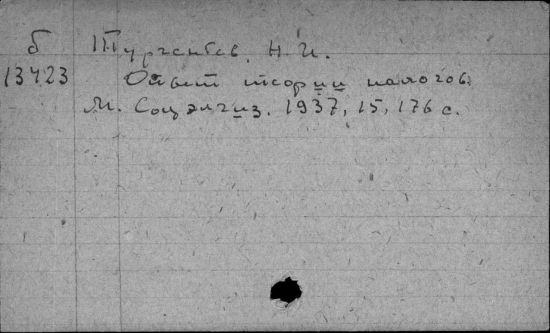 б Тургенев, Н. И.
13423 Опыт теории налогов.
М. Соцэкгиз. 1937, 15, 176 с.